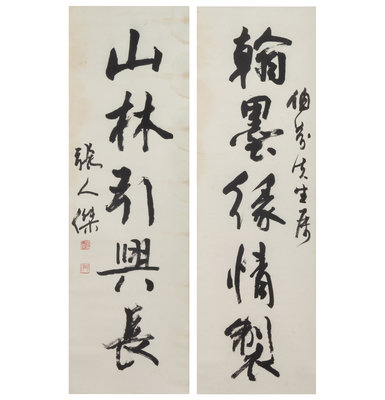 翰墨緣情製
伯芬先生屬
山林引興長
張人傑